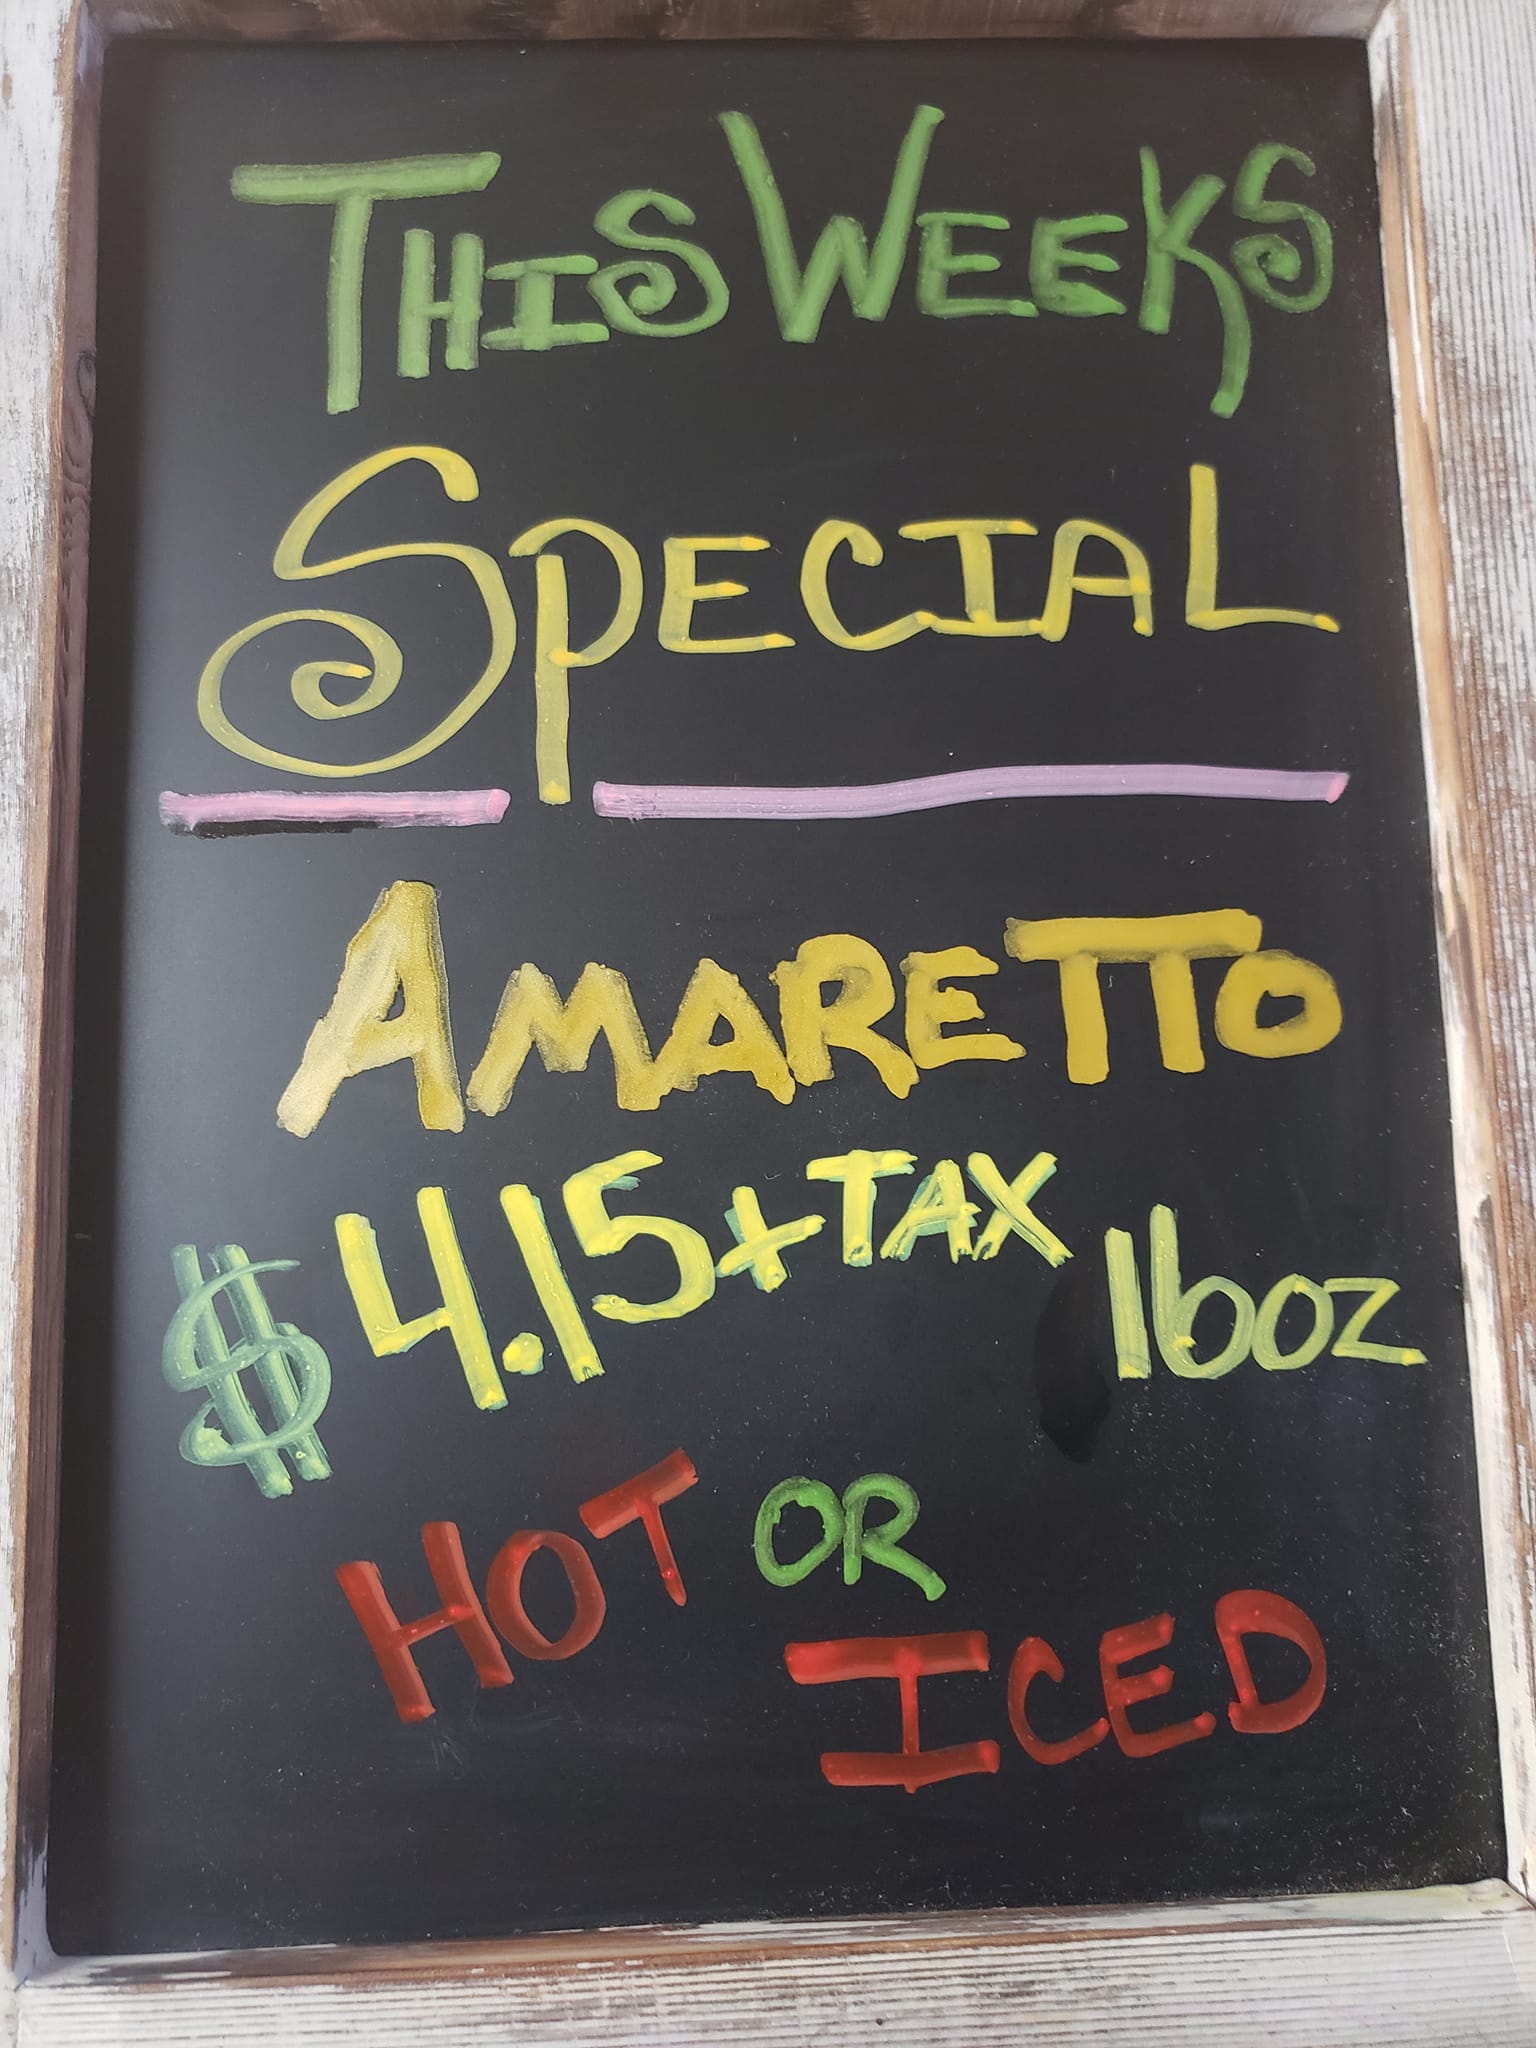 THIS WEEKS
SPECIAL
AMARETTO
$4.15+TAX 16oz
HOT OR
ICED